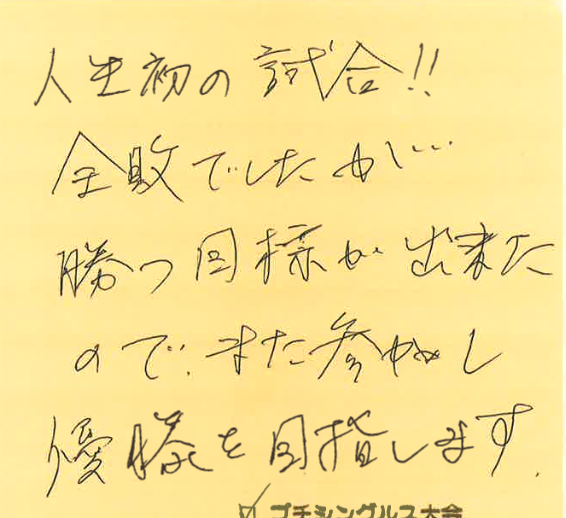 人生初の試合!!
全敗でしたが…
勝つ目標が出来た
ので、また参加し
優勝を目指します。
☑ プチシングルス大会